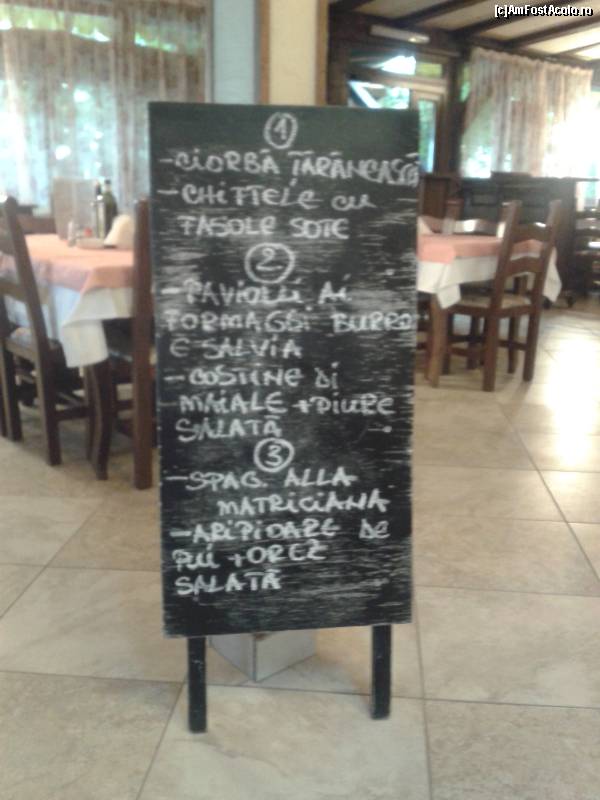 [c]AmFostAcolo.ro
1
-CIORBĂ ȚĂRĂNEASCĂ
-CHIFTELE CU
FASOLE SOTE
2
-RAVIOLI AI
FORMAGGI BURRO
E SALVIA
-COSTINE DI
MAIALE +PIURE
SALATĂ
3
-SPAG. ALLA
MATRICIANA
-ARIPIOARE DE
PUI +OREZ
SALATĂ